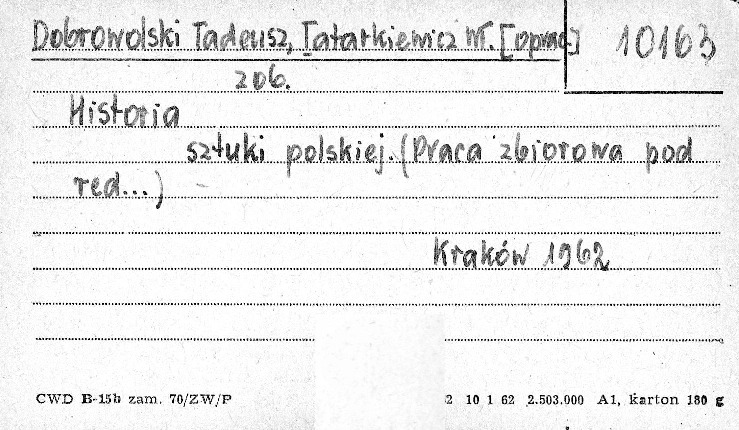 Dobrowolski Tadeusz, Tatarkiewicz Wł. [oprac.] 10163
zob.
Historia
sztuki polskiej. (Praca zbiorowa pod
red...)
Kraków 1962
CWD B-15b zam. 70/ZW/P 2 10 1 62 2.503.000 A1, karton 180 g